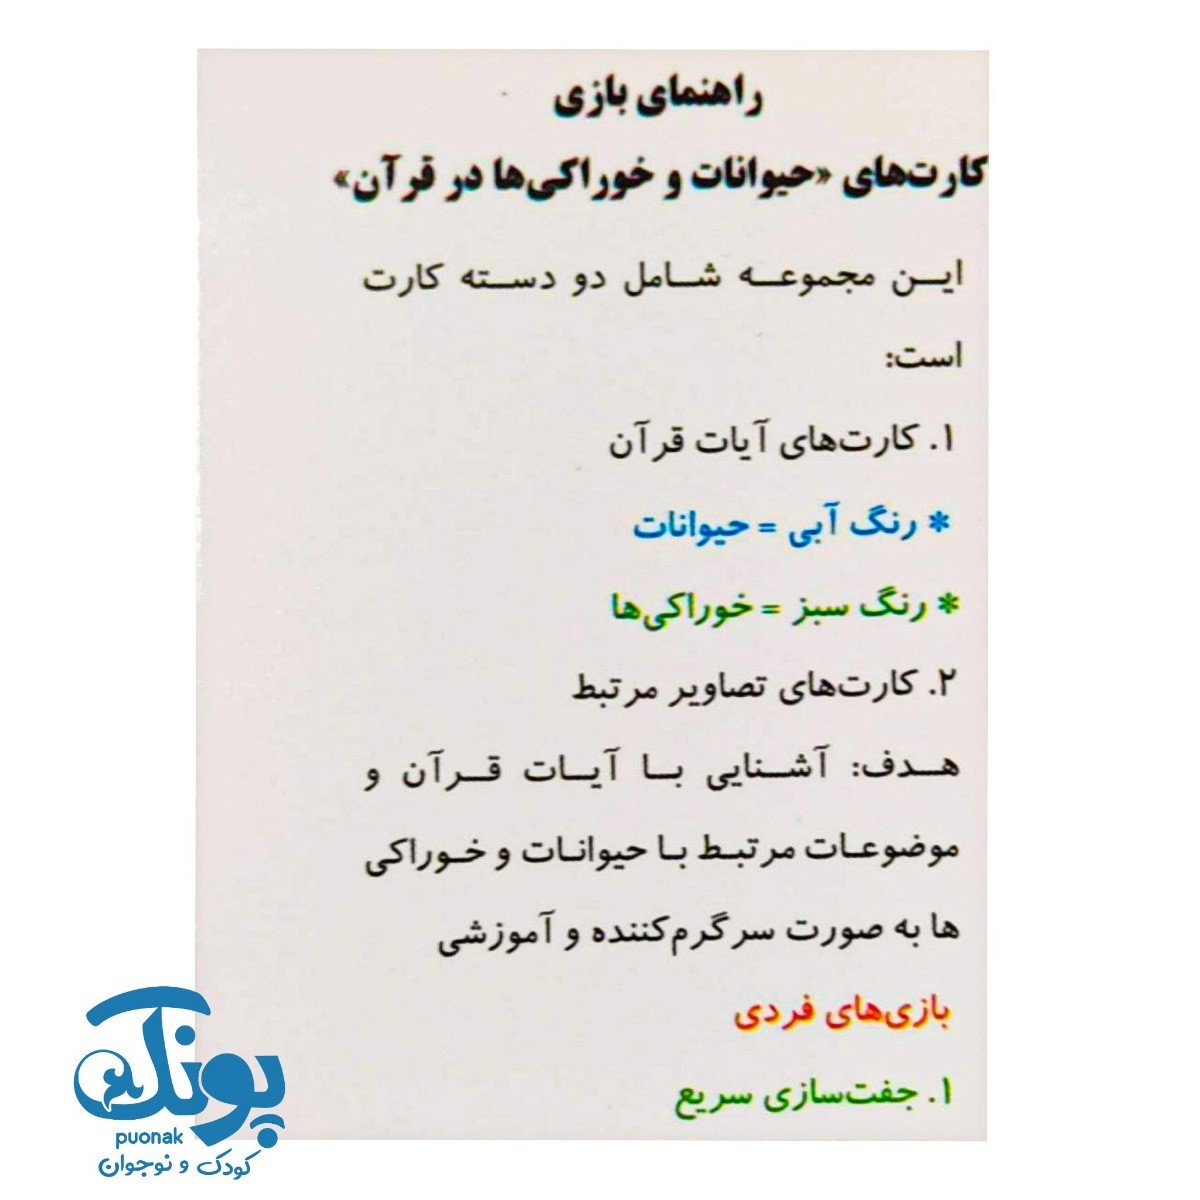 راهنمای بازی
کارت‌های «حیوانات و خوراکی‌ها در قرآن»
این مجموعه شامل دو دسته کارت
است:
۱. کارت‌های آیات قرآن
* رنگ آبی = حیوانات
* رنگ سبز = خوراکی‌ها
۲. کارت‌های تصاویر مرتبط
هدف: آشنایی با آیات قرآن و
موضوعات مرتبط با حیوانات و خوراکی
ها به صورت سرگرم‌کننده و آموزشی
بازی‌های فردی
۱. جفت‌سازی سریع
پونک
puonak
کودک و نوجوان